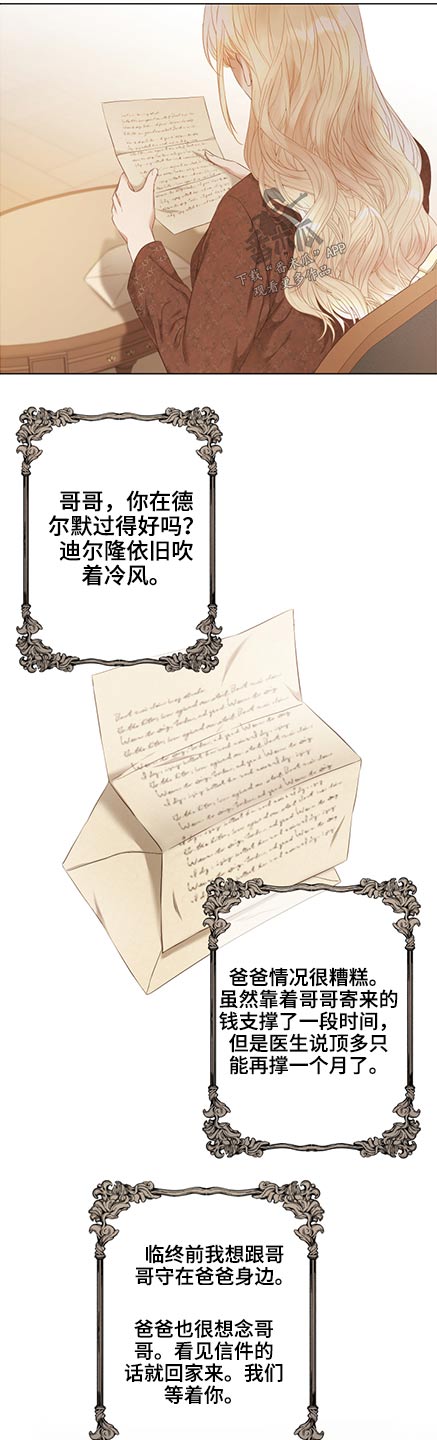 番木瓜
APP
下载“番木瓜”
观看更多作品
哥哥，你在德
尔默过得好吗？
迪尔隆依旧吹
着冷风。
爸爸情况很糟糕。
虽然靠着哥哥寄来的
钱支撑了一段时间，
但是医生说顶多只
能再撑一个月了。
临终前我想跟哥
哥守在爸爸身边。
爸爸也很想念哥
哥。看见信件的
话就回家来。我们
等着你。